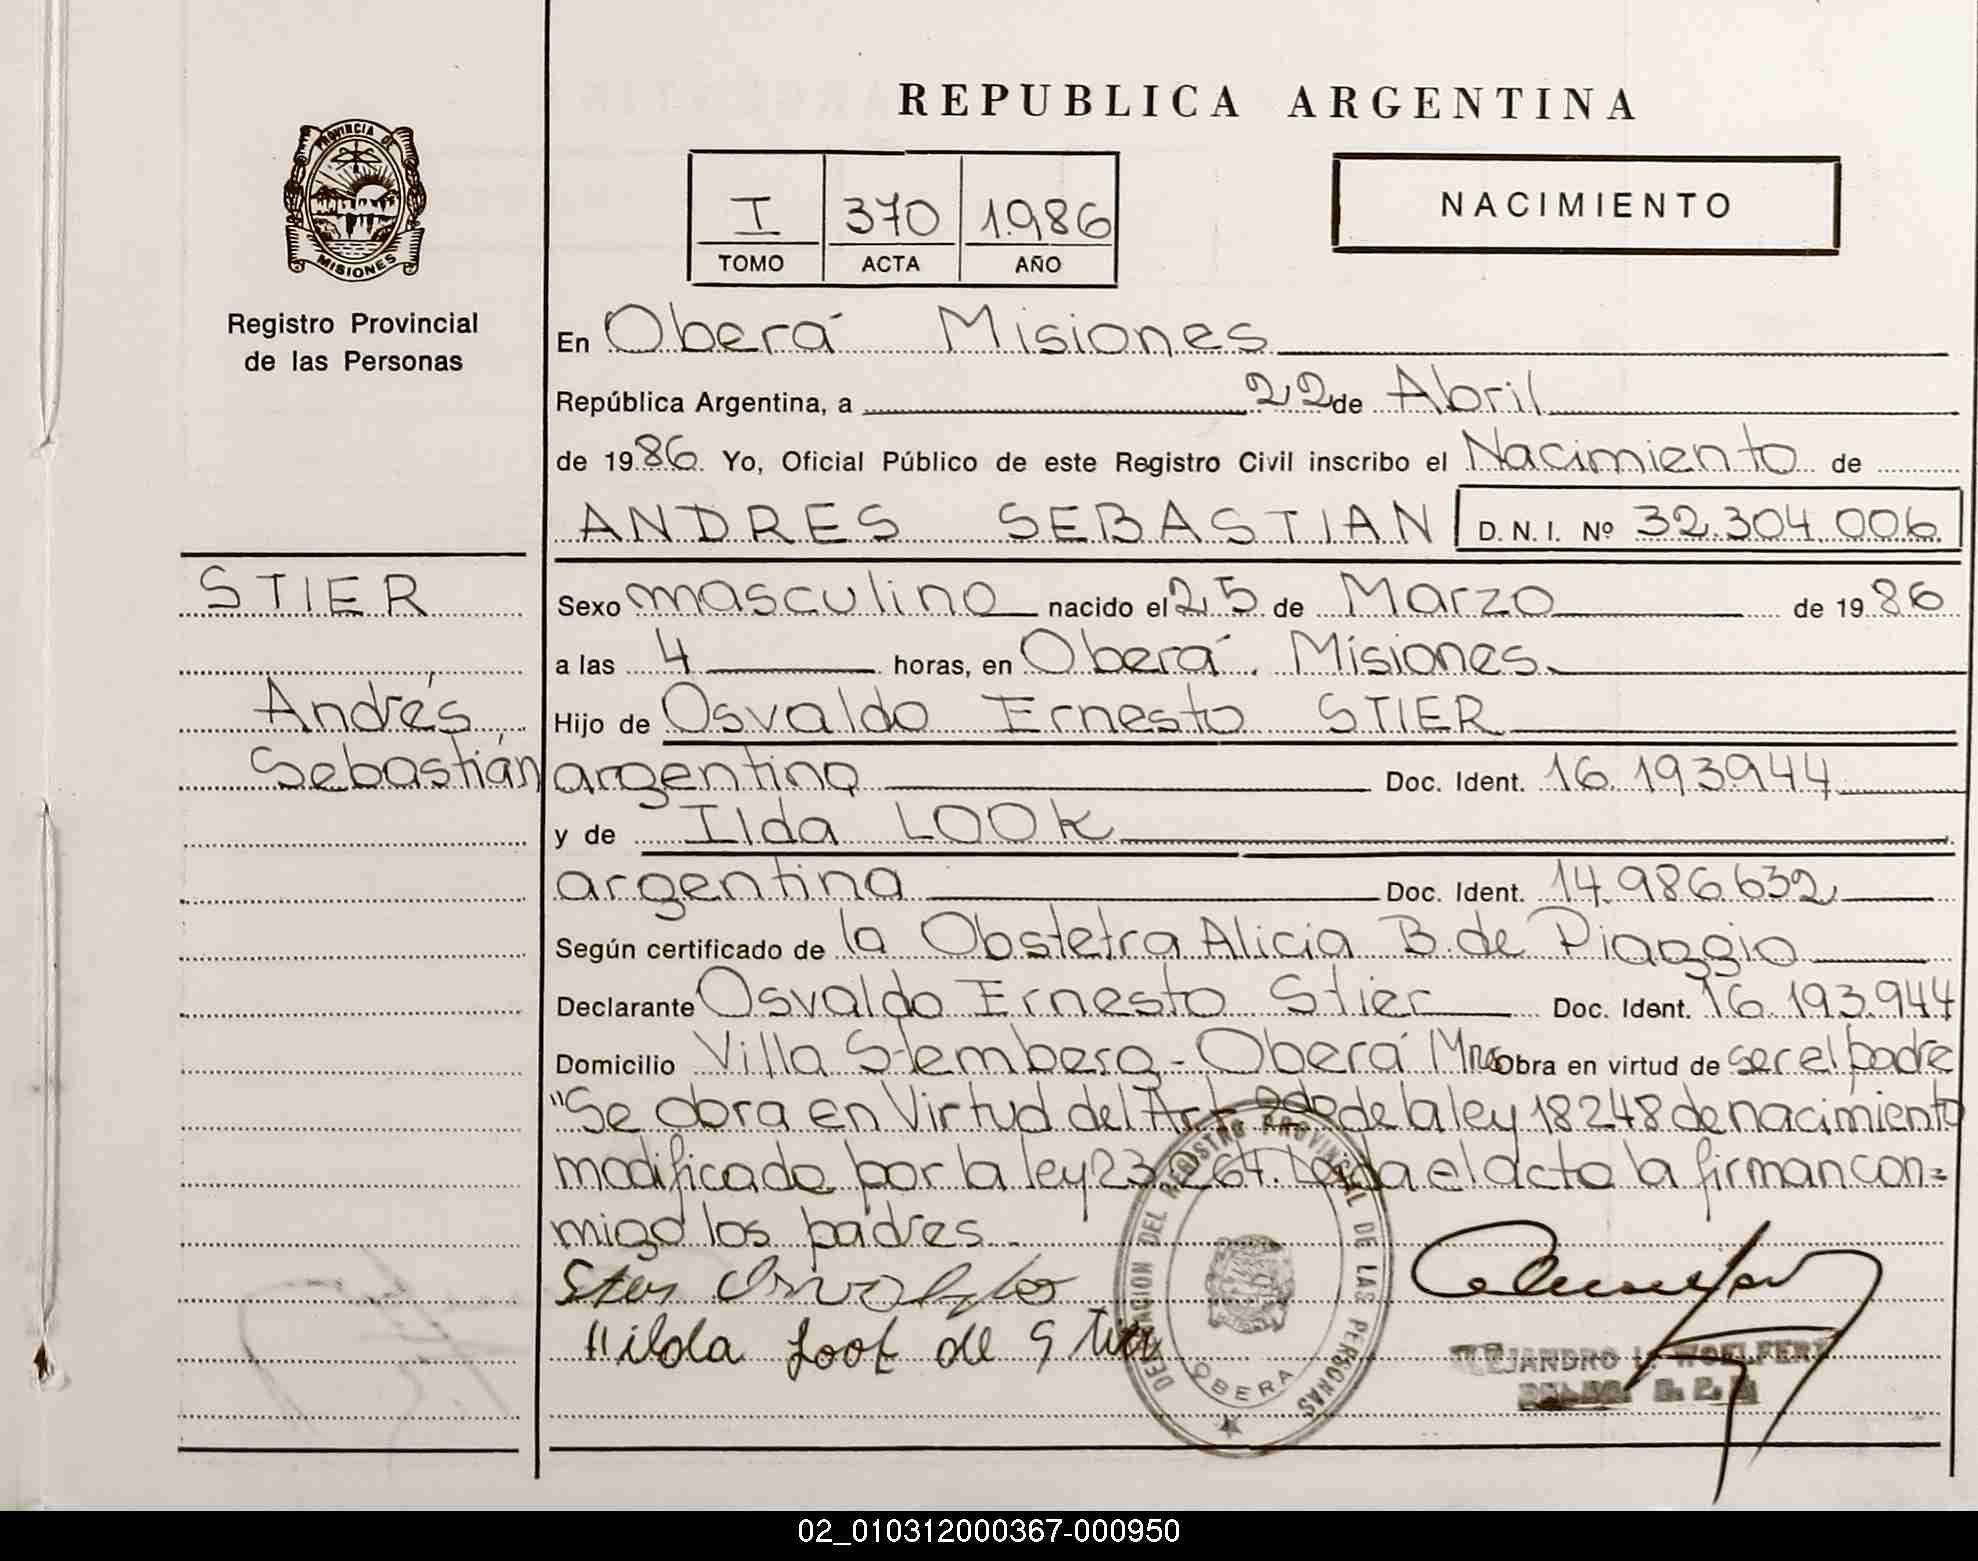 REPUBLICA ARGENTINA
PROVINCIA DE
MISIONES
Registro Provincial
de las Personas
I 370 1.986
TOMO ACTA AÑO
NACIMIENTO
En Oberá Misiones
República Argentina, a 22 de Abril
de 1986. Yo, Oficial Público de este Registro Civil inscribo el Nacimiento de
ANDRES SEBASTIAN D. N. I. Nº 32.304.006
STIER
Andrés
Sebastián
Sexo masculino nacido el 25 de Marzo de 1986
a las 4 horas, en Oberá. Misiones.
Hijo de Osvaldo Ernesto STIER
argentino Doc. Ident. 16.193.944
y de Ilda LOOK
argentina Doc. Ident. 14.986.632
Según certificado de la Obstetra Alicia B. de Piaggio
Declarante Osvaldo Ernesto Stier Doc. Ident. 16.193.944
Domicilio Villa Stemberg - Oberá Mnes Obra en virtud de ser el padre
"Se obra en Virtud del Art 2do de la ley 18248 de nacimiento
modificado por la ley 23.264. Leida el acta la firman con=
migo los padres.
Hilda Look de Stier
DELEGACION DEL REGISTRO PROVINCIAL DE LAS PERSONAS
OBERA
ALEJANDRO WOELFERT
02_010312000367-000950